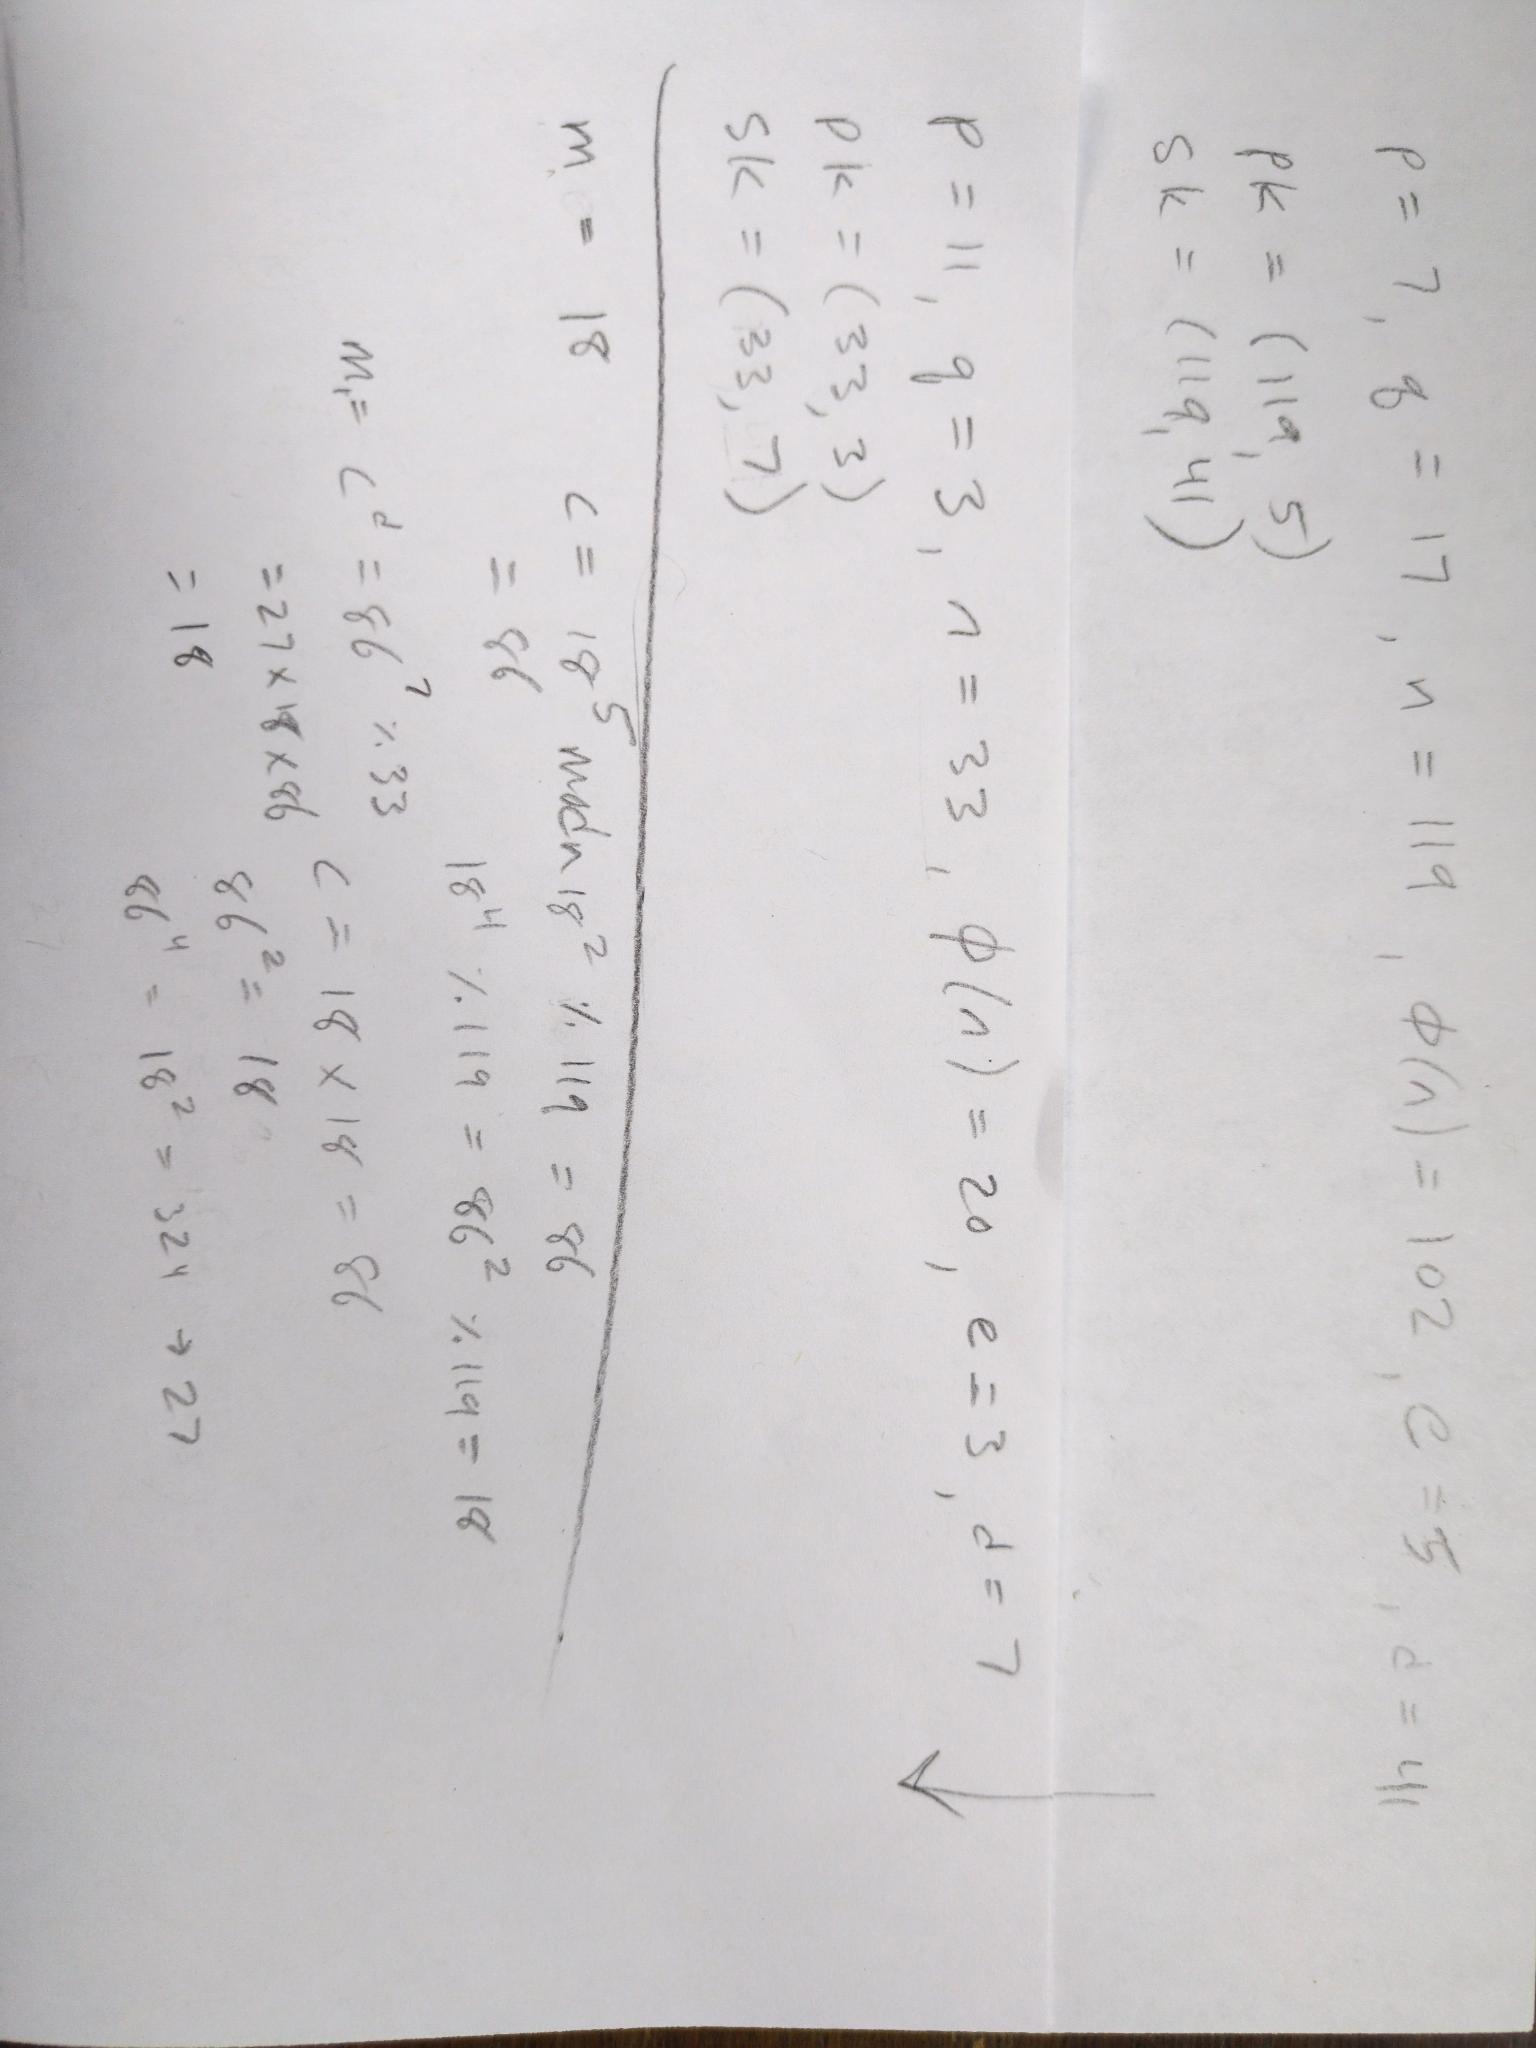 p = 7, q = 17, n = 119, φ(n) = 102, e = 5, d = 41
pk = (119, 5)
sk = (119, 41)
p = 11, q = 3, n = 33, φ(n) = 20, e = 3, d = 7
pk = (33, 3)
sk = (33, 7)
m = 18 c = 18^5 mod n 18^2 % 119 = 86
= 86 18^4 % 119 = 86^2 % 119 = 18
m, = c^d = 86^7 % 33 c = 18 x 18 = 86
= 27 x 18 x 86 86^2 = 18
= 18 86^4 = 18^2 = 324 → 27